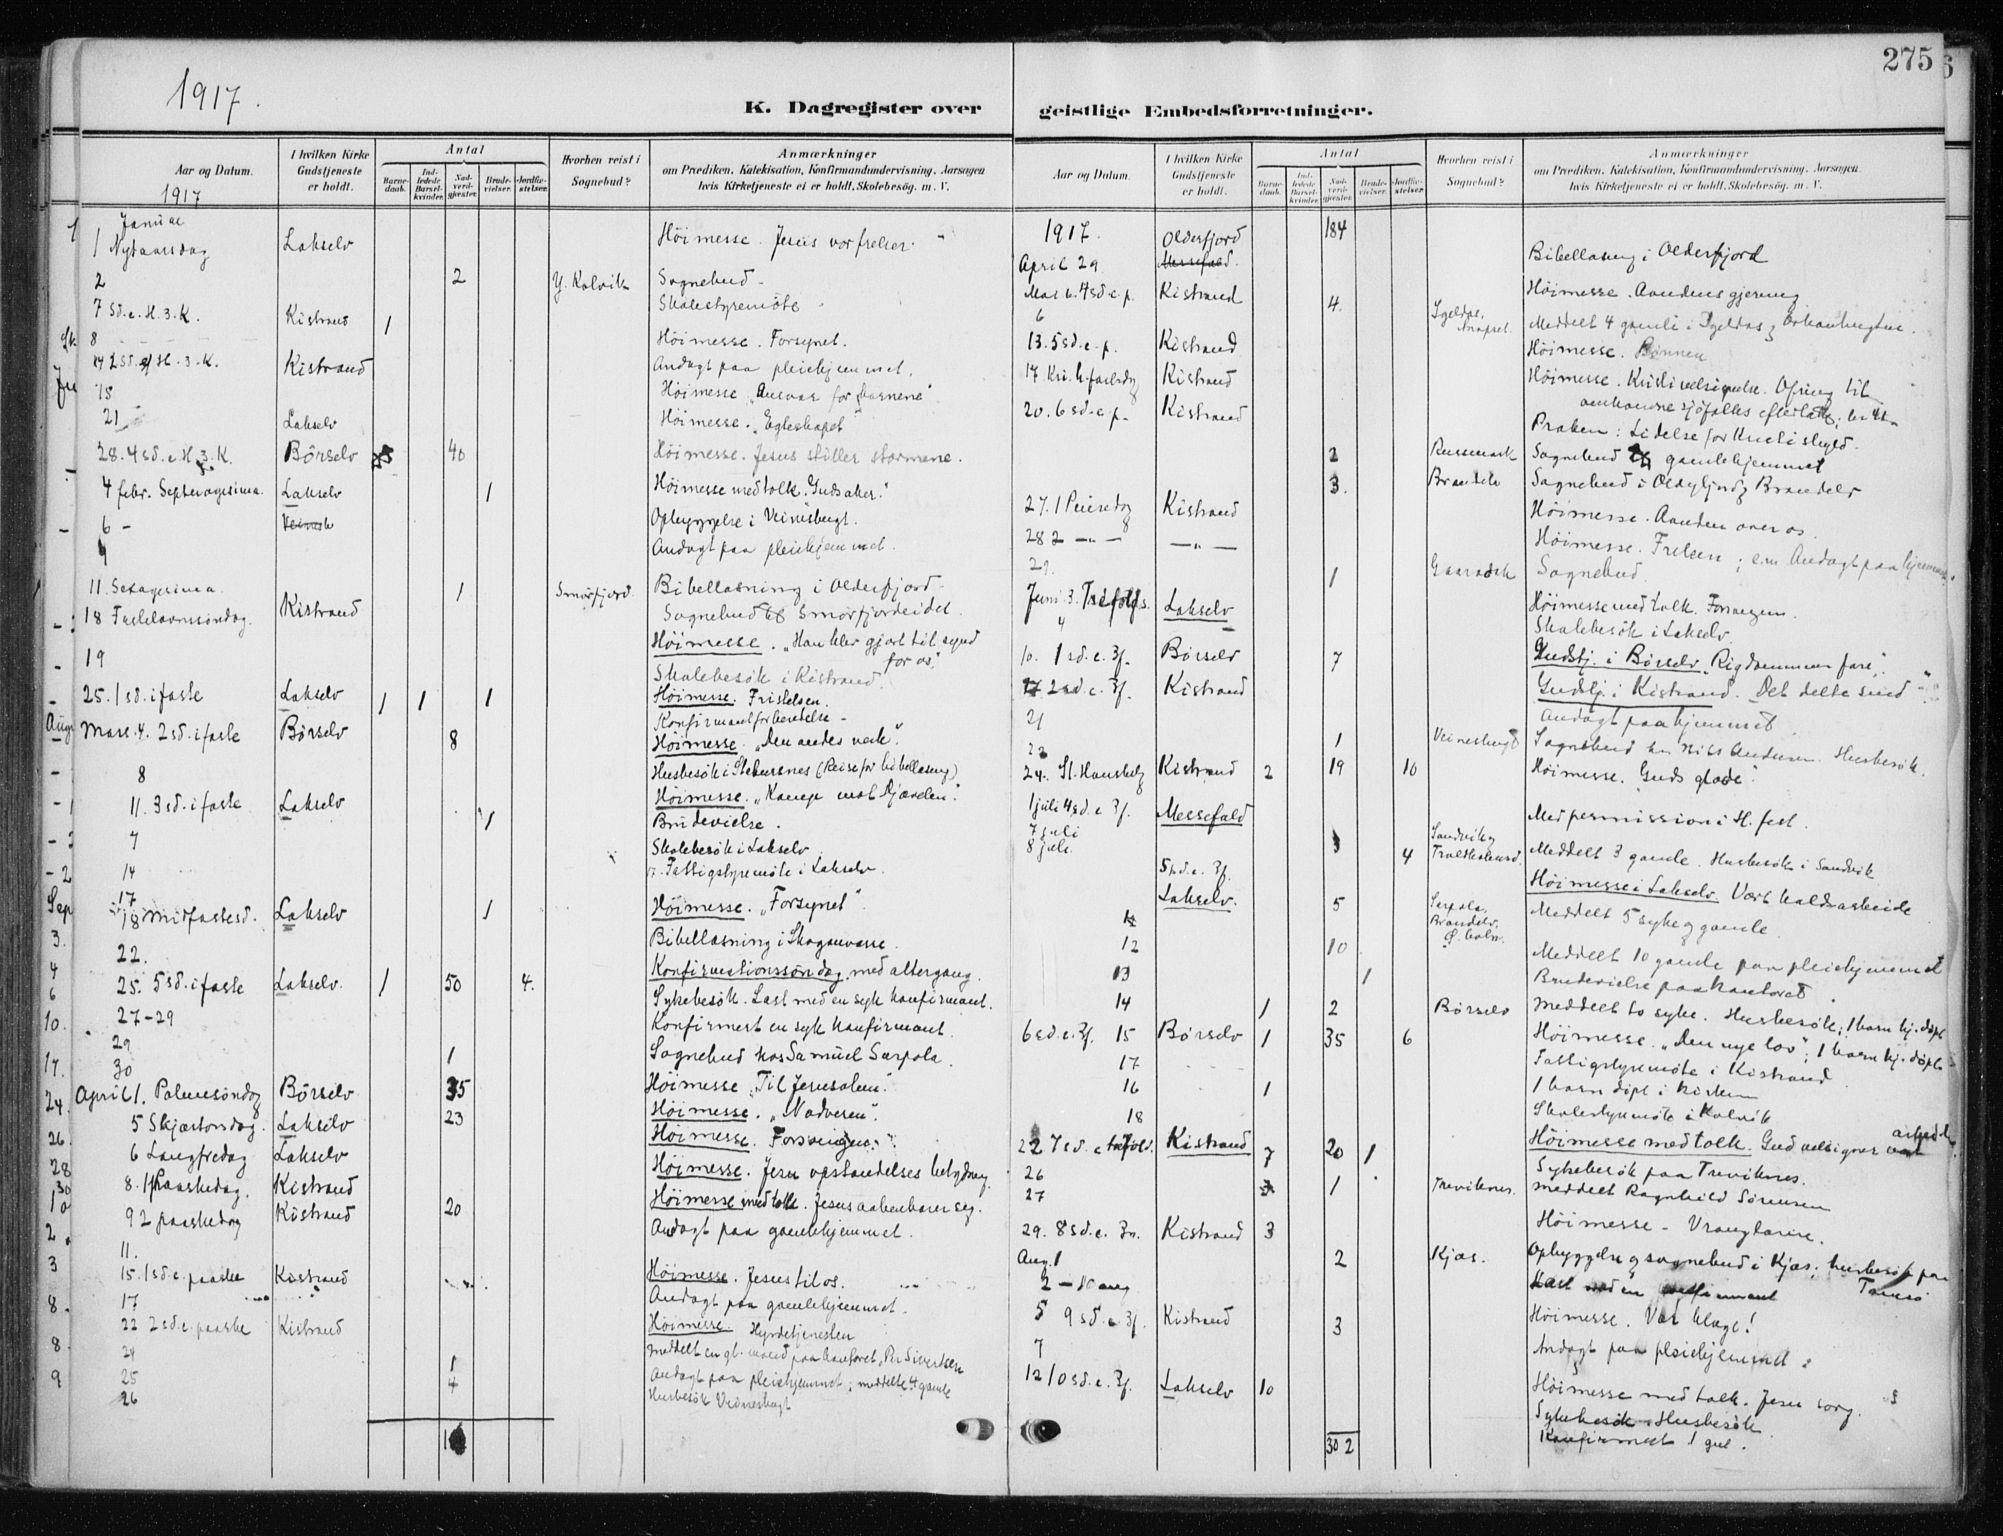 275
1917.
K. Dagregister over geistlige Embedsforretninger.
Aar og Datum.
1917
I hvilken Kirke Gudstjeneste er holdt.
Antal
Barne-daab.
Ind-ledede Barsel-kvinder.
Nad-verd-gjester.
Brude-vielser.
Jordfæ-stelser.
Hvorhen reist i Sognebud?
Anmærkninger
om Prædiken, Katekisation, Konfirmandundervisning, Aarsagen
hvis Kirketjeneste ei er holdt, Skolebesøg, m. V.
Januar
1 Nytaarsdag Lakselv Höimesse. Jesus vor frelser.
2 2 Y. Kolvik Sognebud
7 Sd. e. H. 3. K. Kistrand 1 Skolestyremöte
8 Höimesse. Forsynet.
14 2 Sd. e. H. 3. K. Kistrand Andagt paa pleiehjemmet.
18 Höimesse „Ansvar for barnene"
21 Lakselv Höimesse. „Egteskapet"
28. 4 sd. e. H. 3. K. Börselv 40 Höimesse. Jesus stiller stormene.
4 febr. Septuagesima. Lakselv 1 Höimesse med tolk. „Guds aker."
6 - Opbyggelse i Veinesbugt.
9 Andagt paa pleiehjemmet.
11. Sexagesima 1 Smörfjord Bibellæsning i Olderfjord
18 Fastelavnssöndag. Kistrand Sognebud til Smörfjordeidet.
Höimesse. „Han blev gjort til synd for os."
19 Skolebesök i Kistrand.
25. 1 sd. i faste Lakselv 1 1 1 Höimesse. Fristelsen.
Konfirmantforberedelse -
Mars. 4. 2 sd. i faste Börselv 8 Höimesse. „Den andes verk".
8 Husbesök i Stekersnes (Reise for bibellæsng)
11. 3 sd. i faste Lakselv Höimesse. „Kamp mot djævelen".
7 1 Brudevielse.
14 Skolebesök i Lakselv
17 Fattigstyremöte i Lakselv.
18 Midfastesd. Lakselv 1 Höimesse. „Forsynet"
22. Bibellæsning i Skoganvarre.
25. 5 sd. i faste Lakselv. 1 50 4. Konfirmationssöndag med altergang.
27-29 Sykebesök. Læst med en syk konfirmant.
29 Konfirmert en syk konfirmant.
30 1 Sognebud hos Samuel Sarpola.
April 1. Palmesöndag Börselv 35 Höimesse „Til Jerusalem".
5 Skjærtorsdag. Lakselv 23 Höimesse. „Nadveren".
6 Langfredag Lakselv Höimesse. Forsoningen.
8. 1 Paaskedag. Kistrand Höimesse. Jesu opstandelses betydning
9 2 paaskedag Kistrand 20 Höimesse med tolk. Jesus aabenbarer seg.
11. Andagt paa gamlehjemmet.
15. 1 sd. e. paaske Kistrand Höimesse. Jesus til os.
17 Andagt paa gamlehjemmet.
22 2 sd. e. paaske Kistrand Höimesse. Hyrdetjenesten
24 1 meddelt en gl. mand paa kontoret, Per Sivertsen
25 4 Andagt paa pleiehjemmet; meddelte 4 gamle
26 Husbesök Veinesbugt
Aar og Datum.
I hvilken Kirke Gudstjeneste er holdt.
Antal
Barne-daab.
Ind-ledede Barsel-kvinder.
Nad-verd-gjester.
Brude-vielser.
Jordfæ-stelser.
Hvorhen reist i Sognebud?
Anmærkninger
om Prædiken, Katekisation, Konfirmandundervisning, Aarsagen
hvis Kirketjeneste ei er holdt, Skolebesøg, m. V.
1917. 184
April 29 Olderfjord Bibellæsng i Olderfjord
Mai 6. 4 sd. e. p. Kistrand Höimesse. Aandens gjerning
6 4. Meddelt 4 gamle i
13. 5 sd. e. p. Kistrand Höimesse. Bönnen
17. Kri. h.farlsdg Kistrand Höimesse. Kristi velsignelse. Ofring til
omkomne sjöfolks efterlatte
20. 6 sd. e. p. Kistrand Præken: Lidelse for Kristi skyld.
2 Russemark Sognebud gamlehjemmet
3. Brandelv Sognebud i Olderfjord og Brandelv
27. 1 Pinsedag Kistrand Höimesse. Aanden over os.
28 2 — „ — — „ — Höimesse. Frelsen; e.m. Andagt paa hjemmet
29. 1 Sognebud
Juni 3. Trefoldgs. Lakselv Höimesse med tolk. Forsoningen.
4 Skolebesök i Lakselv
10. 1 sd. e. 3f. Börselv 7 Gudstj. i Börselv. Rigdommens fare".
17 2 sd. e. 3f. Kistrand Gudstj. i Kistrand. Det delte sind
21 Andagt paa hjemmet
23 1 Veinesbugt Sognebud hos Nils Andersen. Husbesök.
24. St. Hanshelg Kistrand 2 19 10 Höimesse. „Guds glæde".
1 juli 4 sd. e. 3f. Messefald Med permission i H. fest.
7 juli 3 Sandvik og Meddelt 3 gamle. Husbesök i Sandvik
8 juli. 5 sd. e. 3f. Lakselv. 4 Höimesse i Lakselv. Vort kaldsarbeide
5 Sarpola, Brandelv. Meddelt 5 syke og gamle
12 10 Meddelt 10 gamle paa pleiehjemmet
13 1 Brudevielse paa kontoret
14 1 2 Börselv meddelt to syke. Husbesök; 1 barn hj. döpt
6 sd. e. 3f. 15 Börselv 1 35 6 Höimesse. „Den nye lov"; 1 barn hj. döpt
17 Fattigstyremöte i Kistrand
16 1 1 barn döpt i kirken
18 Skolestyremöte i Kolvik
22 7 sd. e. trefold. Kistrand 7 20 1 Höimesse med tolk. Gud velsigner vort arbeide
26 Sykebesök paa Treviknes.
27 1 Treviknes. meddelt Ragnhild Sörensen
29. 8 sd. e. 3n. Kistrand 3 Höimesse - Vranglærere.
Aug. 1 2 Kjæs. Opbyggelse og sognebud i Kjæs; husbesök paa Tamsö
2 - 10 aug
5 9 sd. e. 3f. Kistrand 3 Höimesse. Vær kloge!
7 Andagt paa pleiehjemmet
12 10 sd. e. 3f. Lakselv 10 Höimesse med tolk. Jesu sorg.
Sykebesök - Husbesök
Konfirmert 1 gut.
302